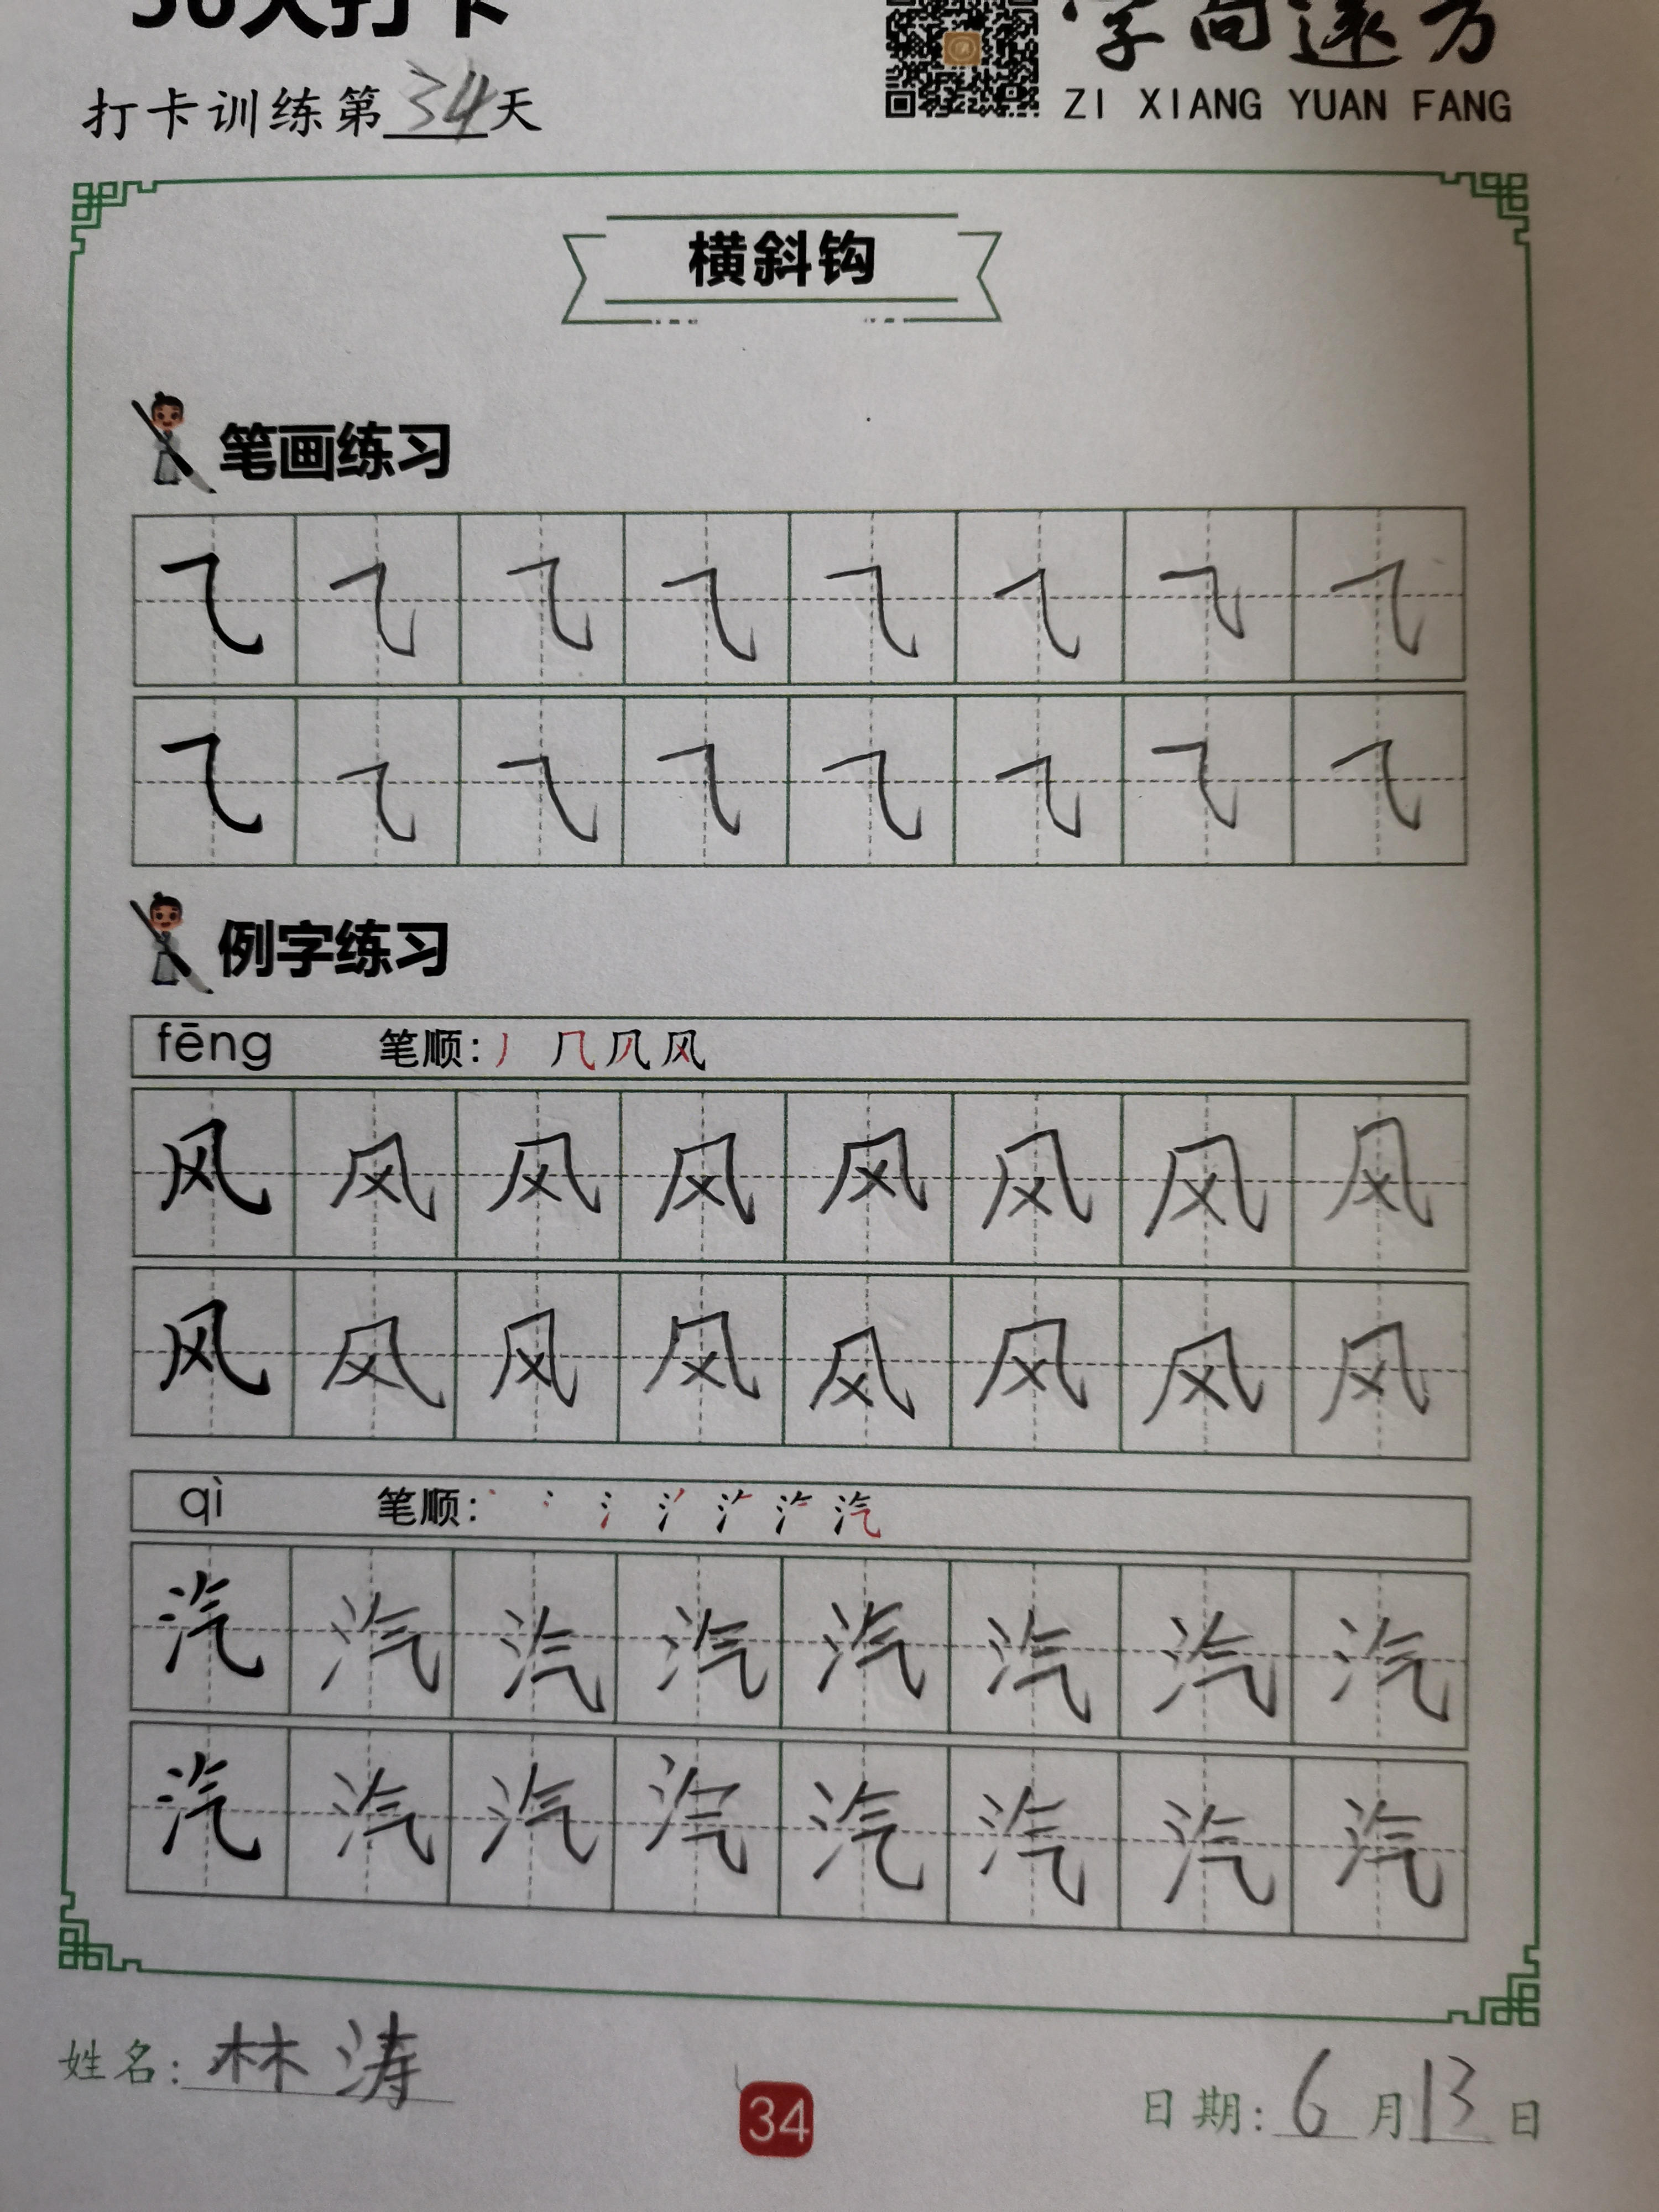 打卡训练第34天
字向远方
ZI XIANG YUAN FANG
横斜钩
笔画练习
例字练习
fēng 笔顺:
风 风 风 风 风 风 风 风
风 风 风 风 风 风 风 风
qì 笔顺:
汽 汽 汽 汽 汽 汽 汽 汽
汽 汽 汽 汽 汽 汽 汽 汽
姓名: 林涛
34
日期: 6月13日